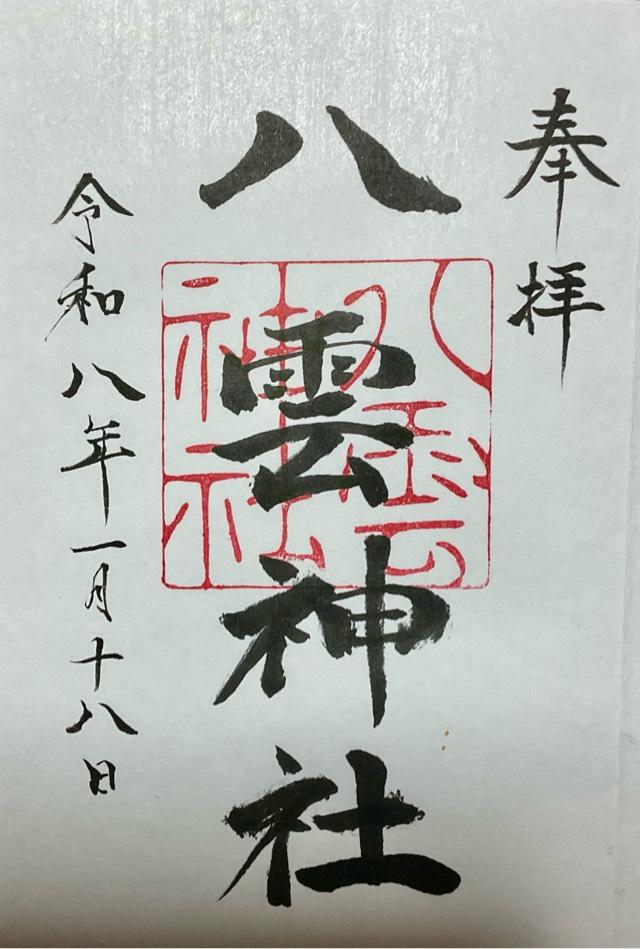 奉拝
八雲神社
八雲神社
令和八年一月十八日